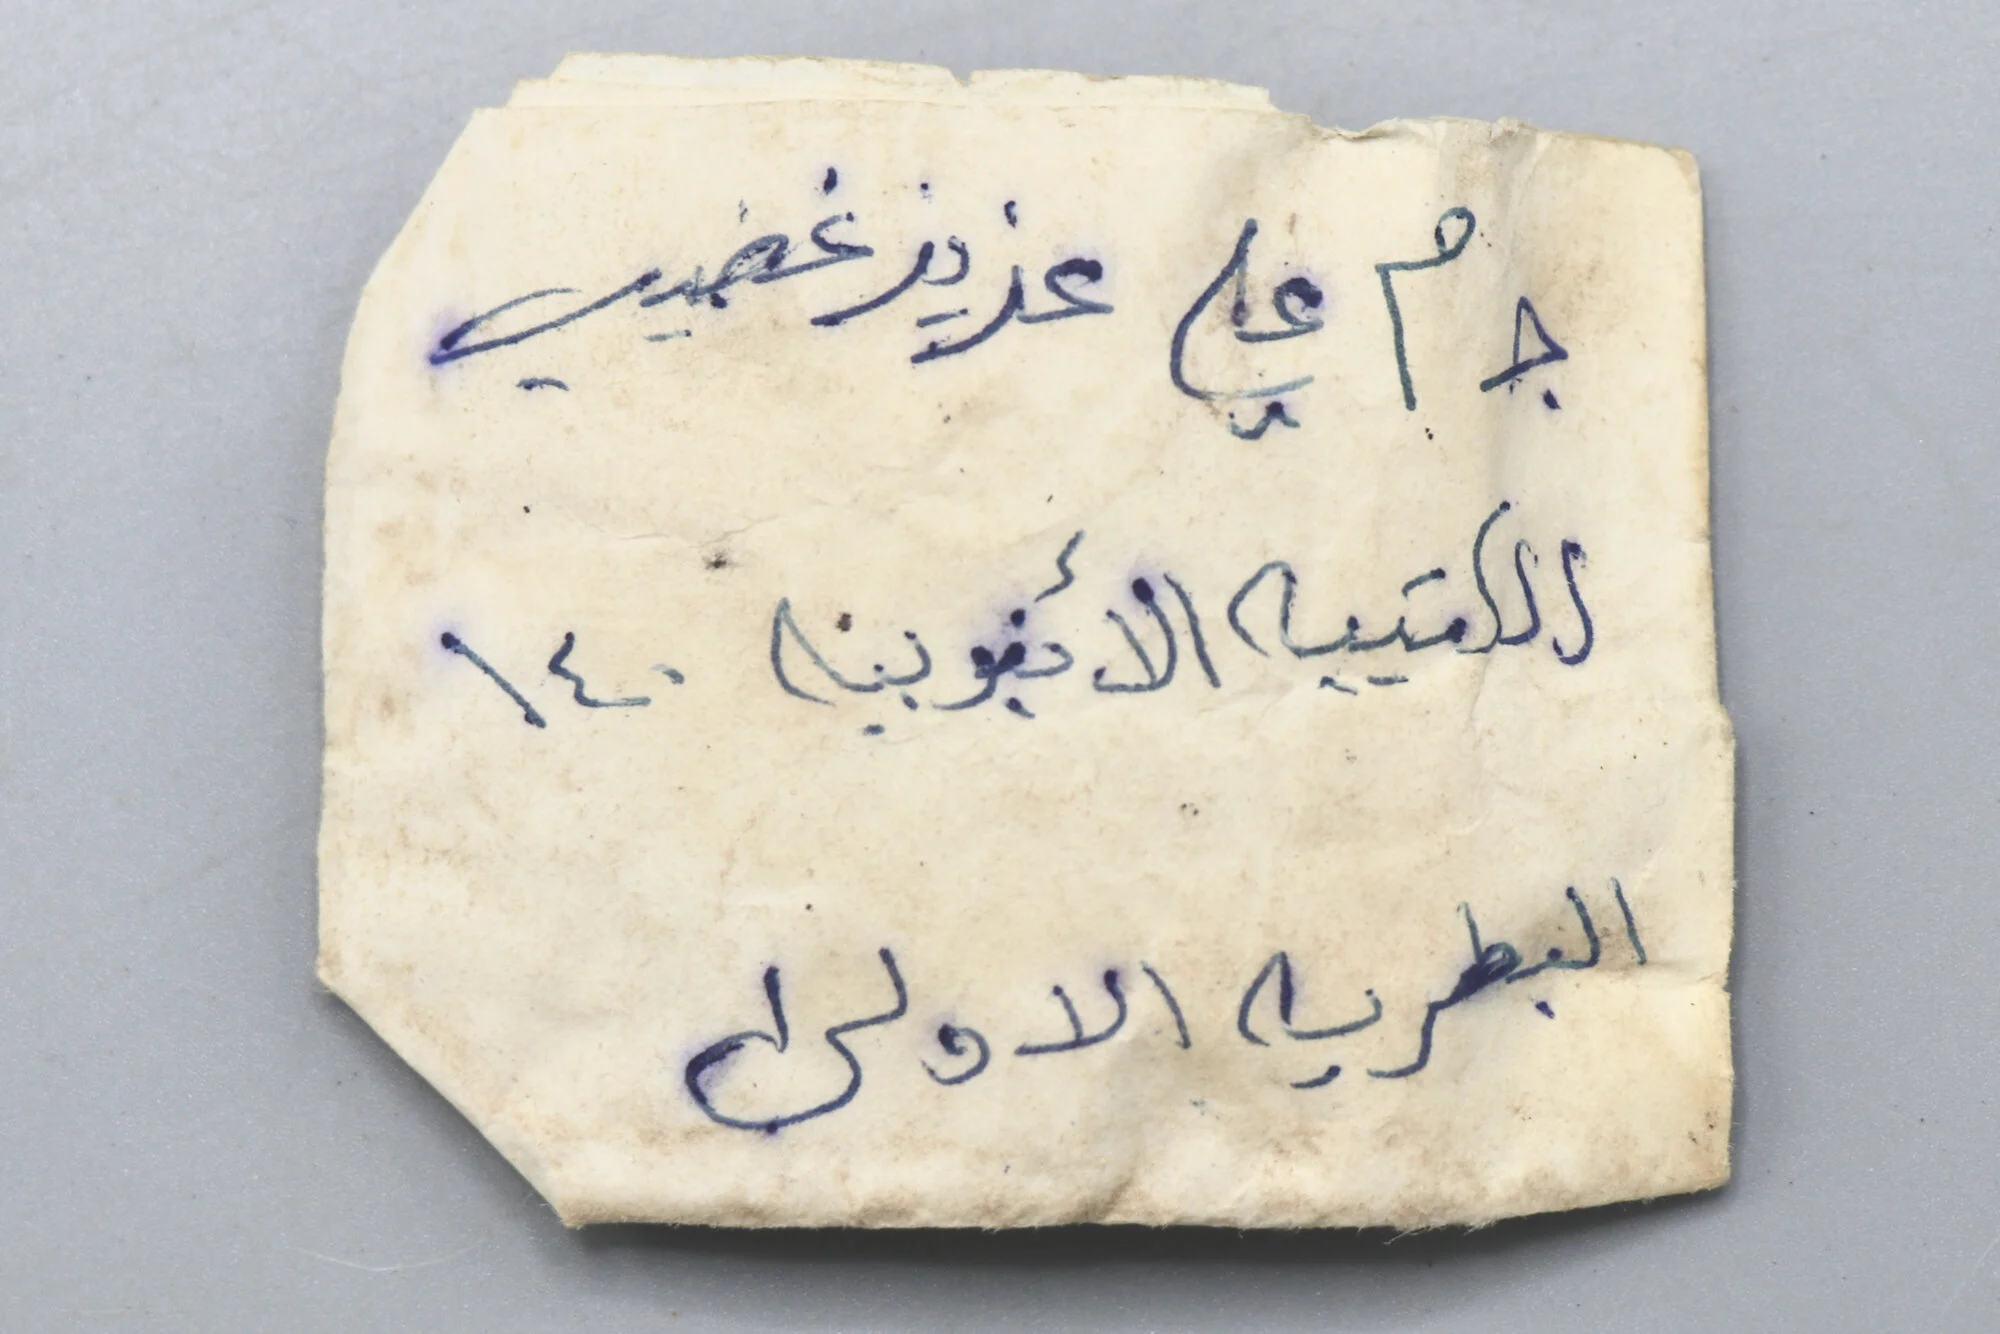 ج م علي عزيز غضيب
الكتيبه الأنبوبيه ١٤٠
البطريه الاولى